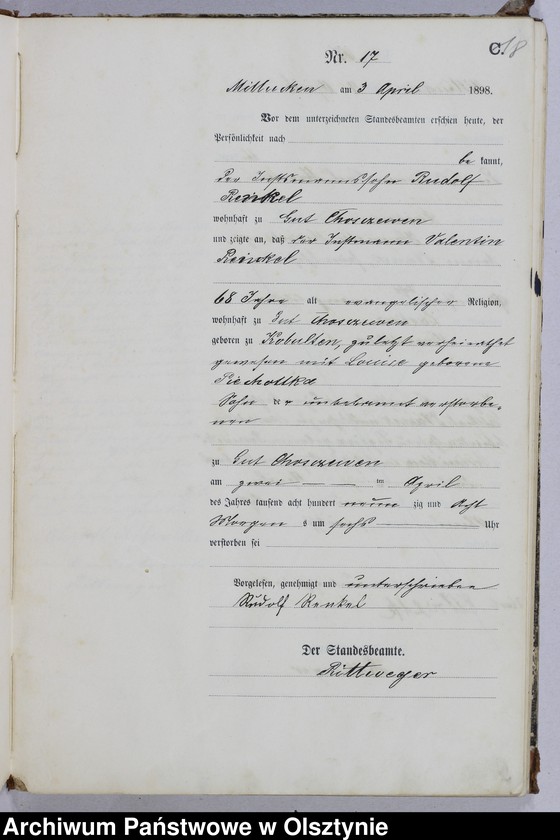 C. 18
Nr. 17
Mittucken am 3 April 1898.
Vor dem unterzeichneten Standesbeamten erschien heute, der
Persönlichkeit nach
be kannt,
der Instmannssohn Rudolf
Renkel
wohnhaft zu Gut Choszewen
und zeigte an, daß der Instmann Valentin
Reinkel
68 Jahre alt evangelischer Religion,
wohnhaft zu Gut Choszewen
geboren zu Kobulten, zuletzt verheirathet
gewesen mit Louise geborene
Piechottka
Sohn der unbekannt verstorbe-
nen
zu Gut Choszewen
am zwei ten April
des Jahres tausend acht hundert neun zig und Acht
Morgen s um sechs Uhr
verstorben sei
Vorgelesen, genehmigt und unterschrieben
Rudolf Renkel
Der Standesbeamte.
Rittweger
Archiwum Państwowe w Olsztynie